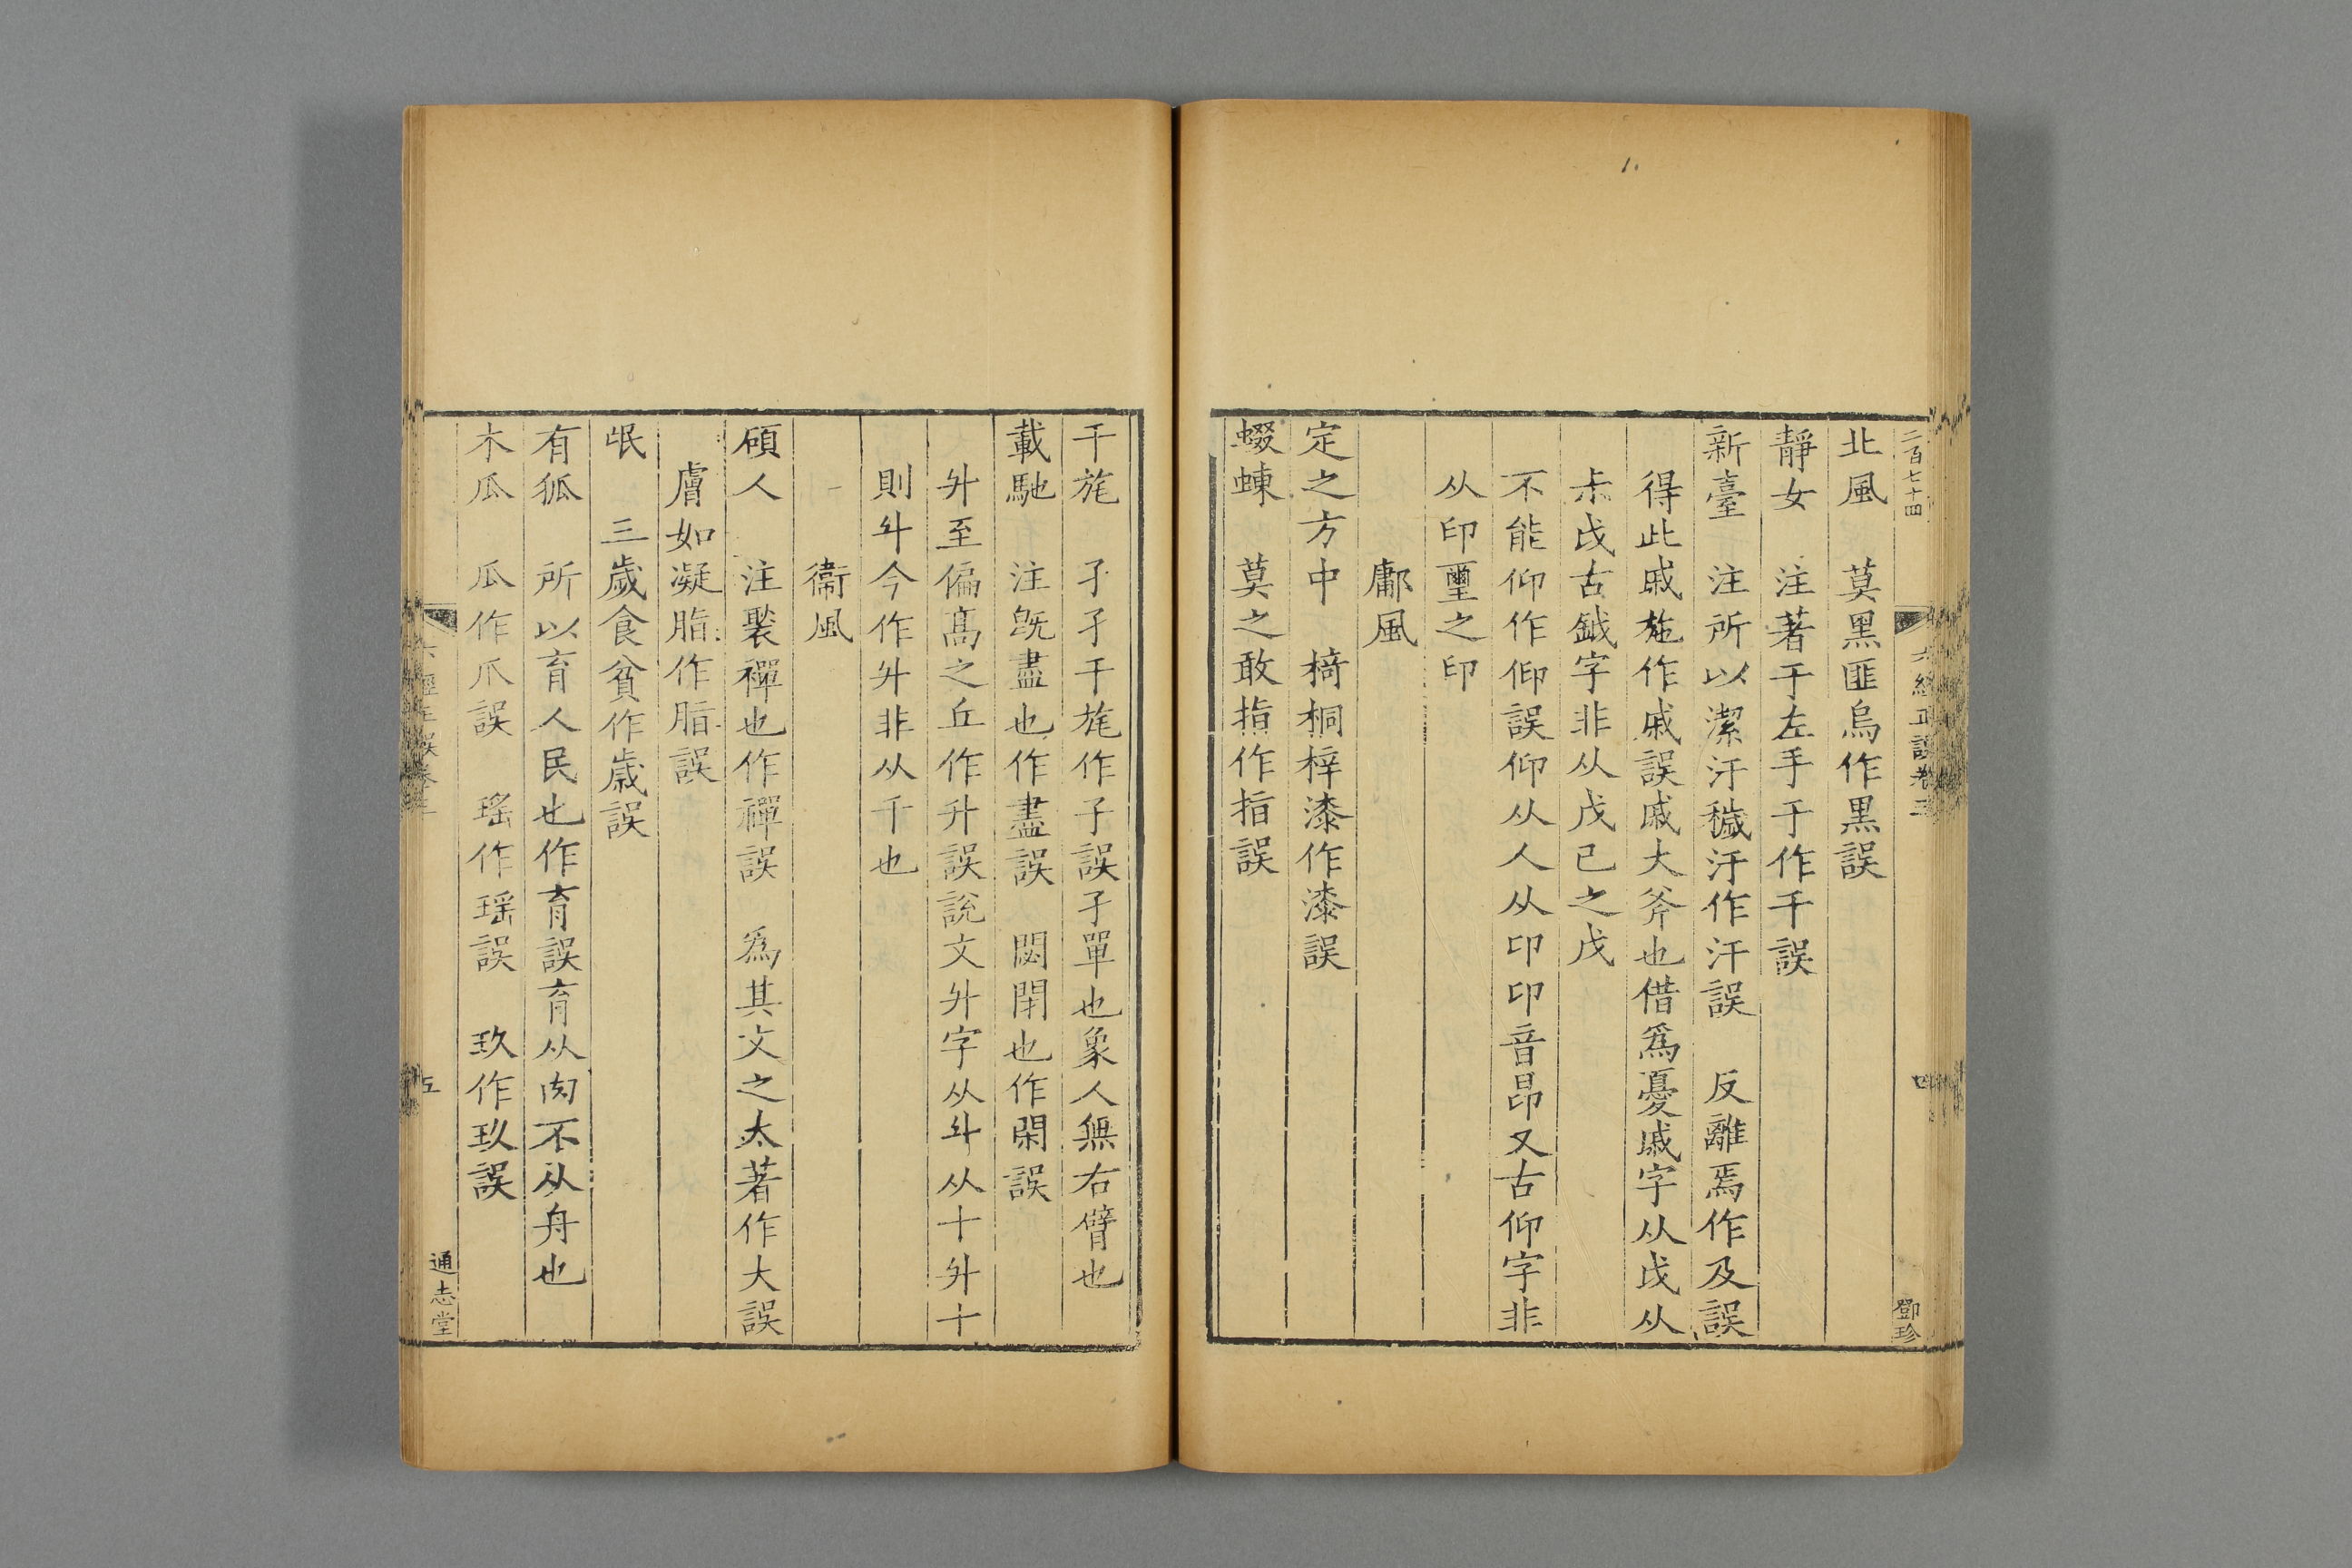 二百七十四
六經正誤卷三
四
鄧珍
北風　莫黑匪烏作黒誤
靜女　注著于左手于作千誤
新臺　注所以潔汙穢汙作汗誤　反離焉作及誤
得此戚施作戚誤戚大斧也借爲憂戚字从戉从
尗戉古鉞字非从戊己之戊
不能仰作仰誤仰从人从卬卬音昂又古仰字非
从印璽之印
鄘風
定之方中　椅桐梓漆作漆誤
蝃蝀　莫之敢指作指誤
干旄　孑孑干旄作子誤孑單也象人無右臂也
載馳　注旣盡也作盡誤　閟閉也作閑誤
升至偏高之丘作升誤說文升字从斗从十升十
則斗今作升非从千也
衞風
碩人　注褧禪也作禪誤　爲其文之太著作大誤
膚如凝脂作脂誤
氓　三歲食貧作歲誤
有狐　所以育人民也作育誤育从肉不从舟也
木瓜　瓜作爪誤　瑤作瑶誤　玖作玖誤
六經正誤卷三
五
通志堂